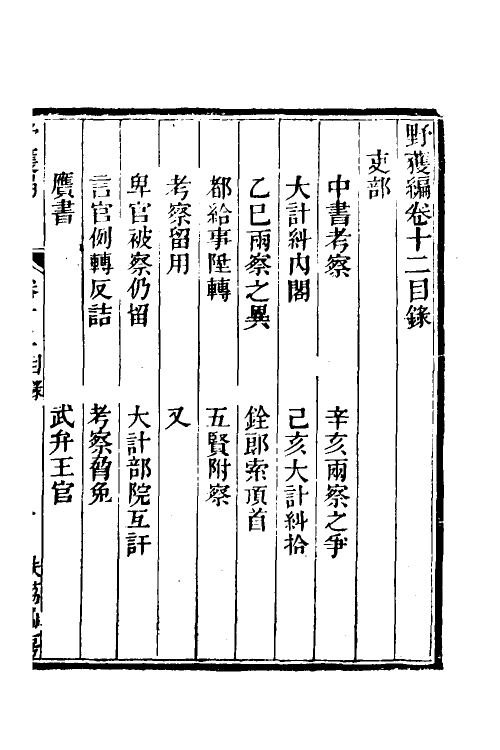 野獲編卷十二目錄
吏部
中書考察　辛亥兩察之爭
大計糾內閣　己亥大計糾拾
乙巳兩察之異　銓郎索頂首
都給事陞轉　五賢附察
考察留用　又
卑官被察仍留　大計部院互訐
言官例轉反詰　考察脅免
贋書　武弁王官